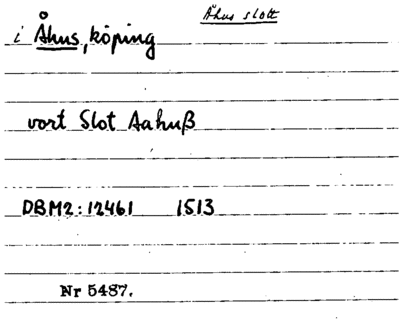 Åhus slott
i Åhus, köping
vort Slot Aahuß
DBM2:12461 1513
Nr 5487.